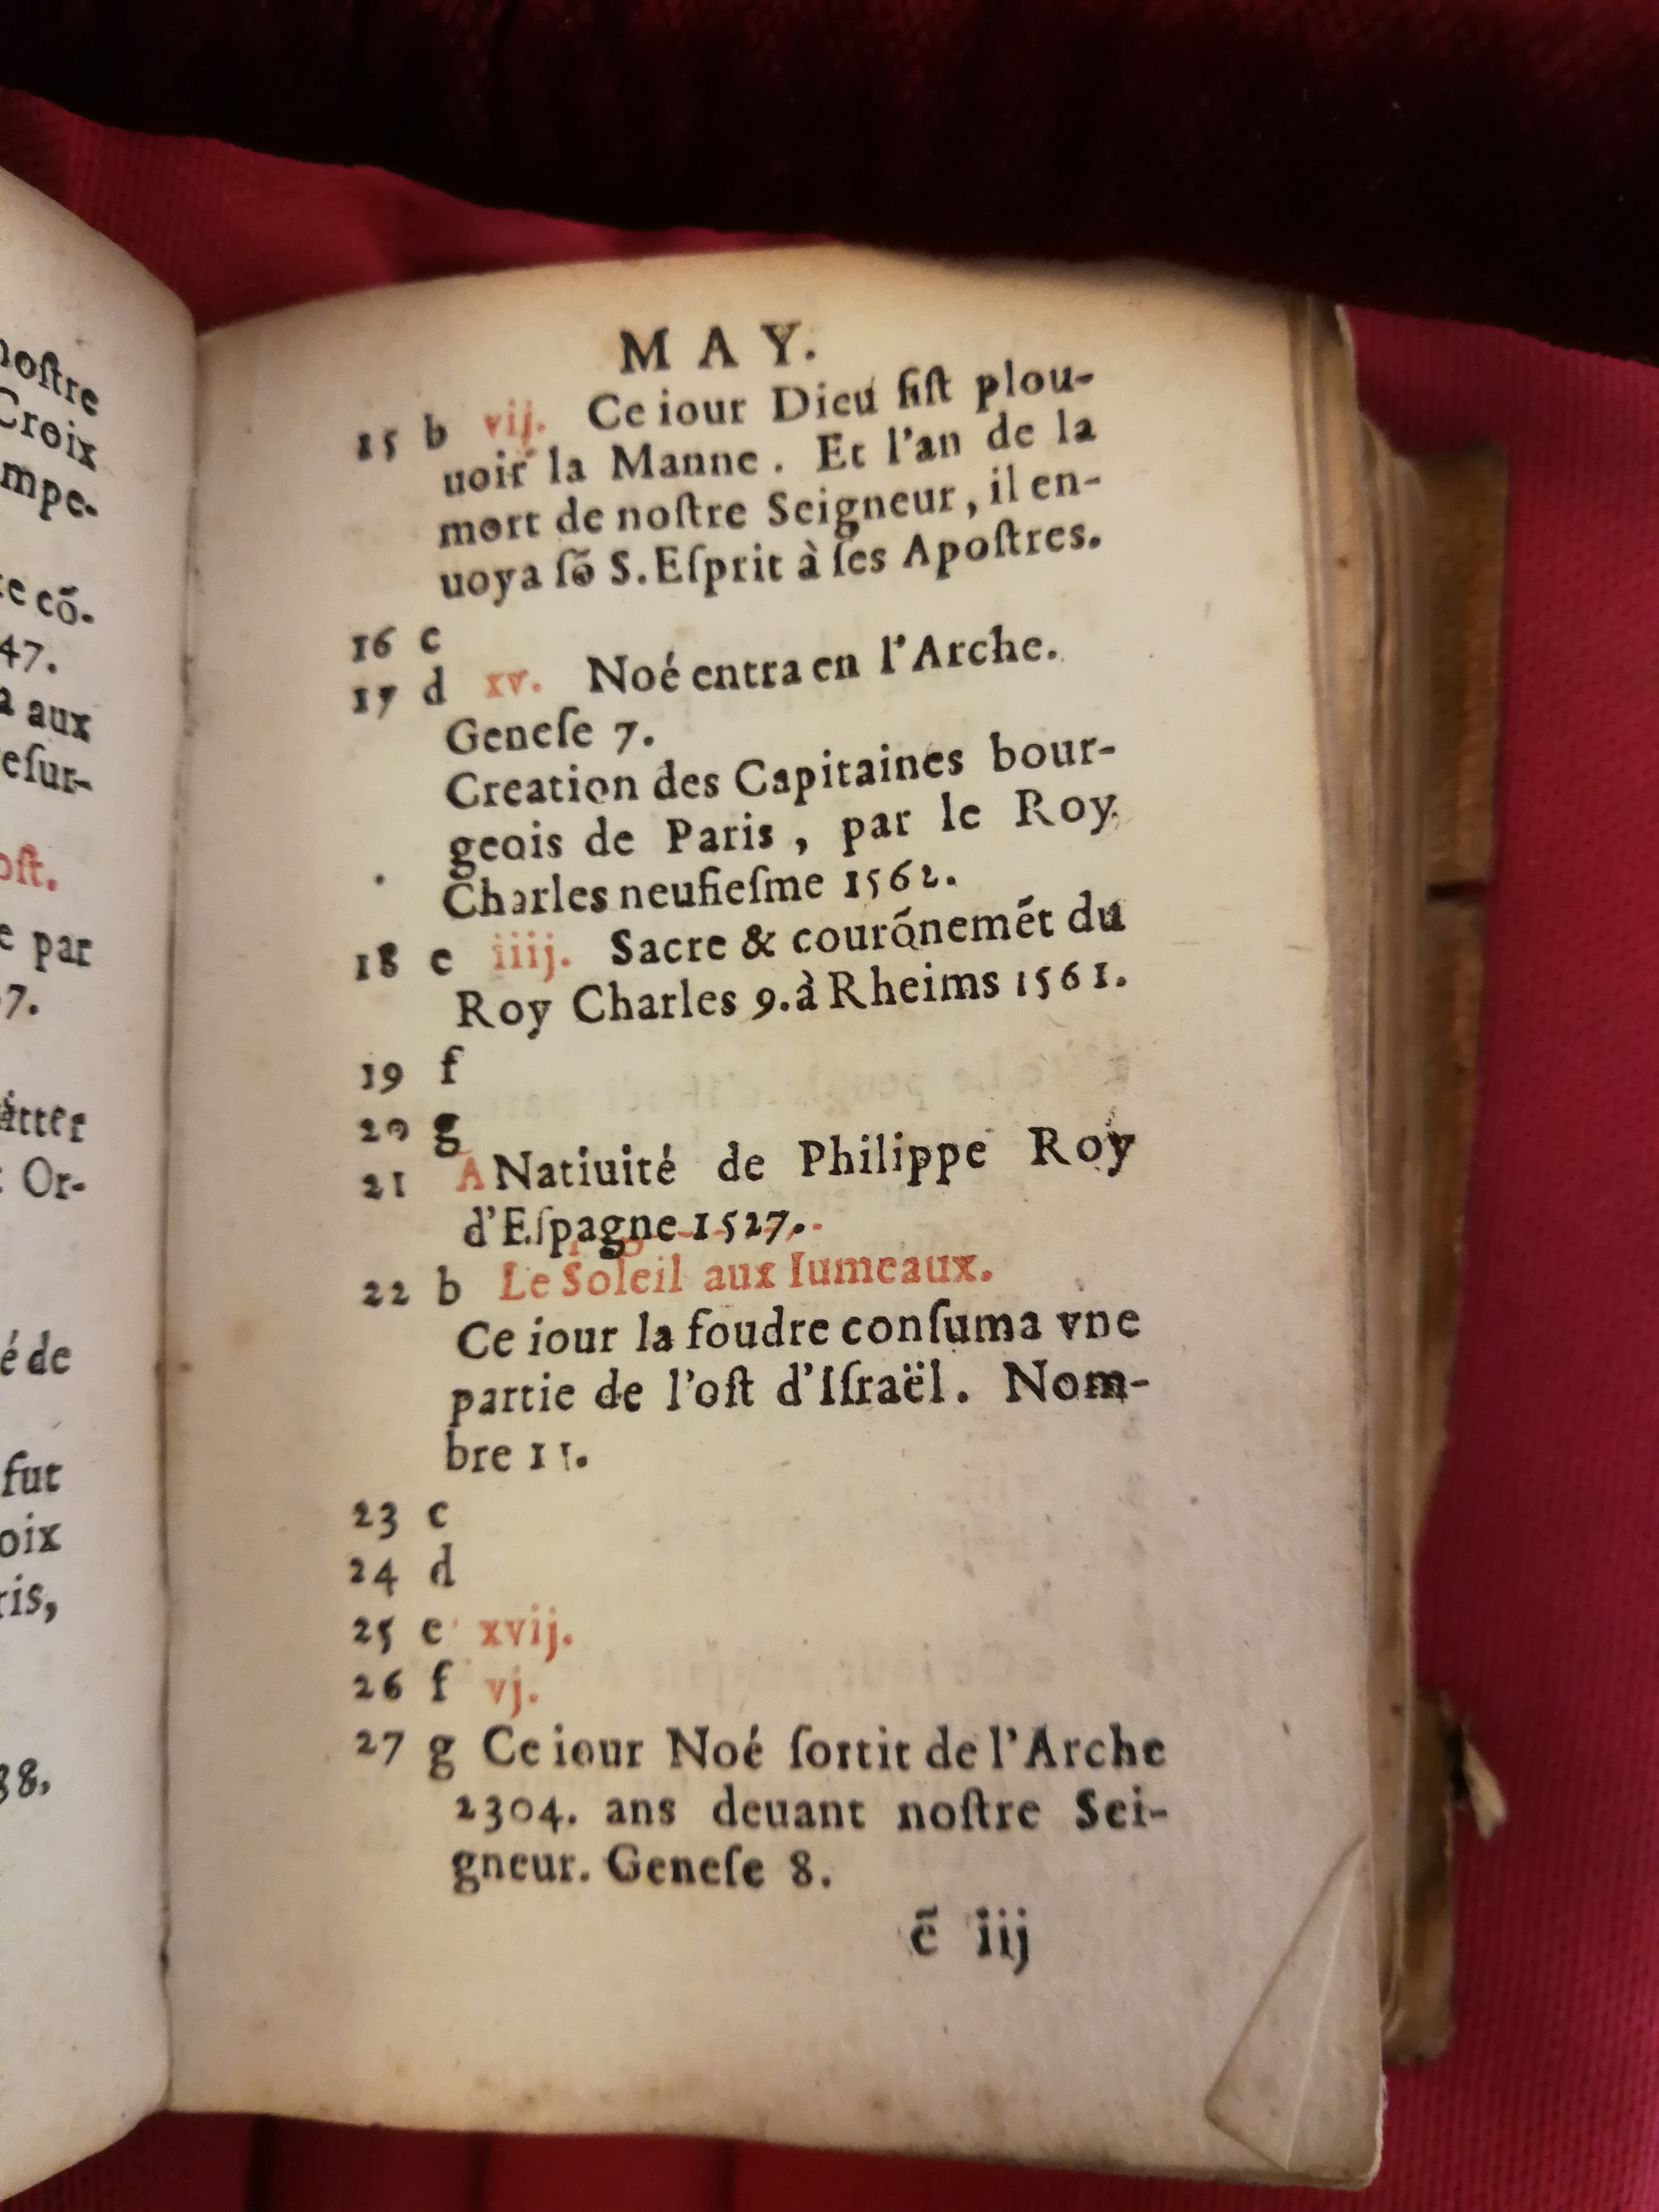 noſtre
Croix
mpe-
te cō-
47.
a aux
eſur-
oſt.
e par
7.
Or-
é de
fut
oix
ris,
38.
MAY.
15 b vij. Ce iour Dieu fiſt plou-
uoir la Manne. Et l'an de la
mort de noſtre Seigneur, il en-
uoya ſō S. Eſprit à ſes Apoſtres.
16 c
17 d xv. Noé entra en l'Arche.
Geneſe 7.
Creation des Capitaines bour-
geois de Paris, par le Roy
Charles neufieſme 1562.
18 e iiij. Sacre & courōnemēt du
Roy Charles 9. à Rheims 1561.
19 f
20 g
21 A Natiuité de Philippe Roy
d'Eſpagne 1527.
22 b Le Soleil aux Iumeaux.
Ce iour la foudre conſuma vne
partie de l'oſt d'Iſraël. Nom-
bre 11.
23 c
24 d
25 e xvij.
26 f vj.
27 g Ce iour Noé ſortit de l'Arche
2304. ans deuant noſtre Sei-
gneur. Geneſe 8.
ē iij